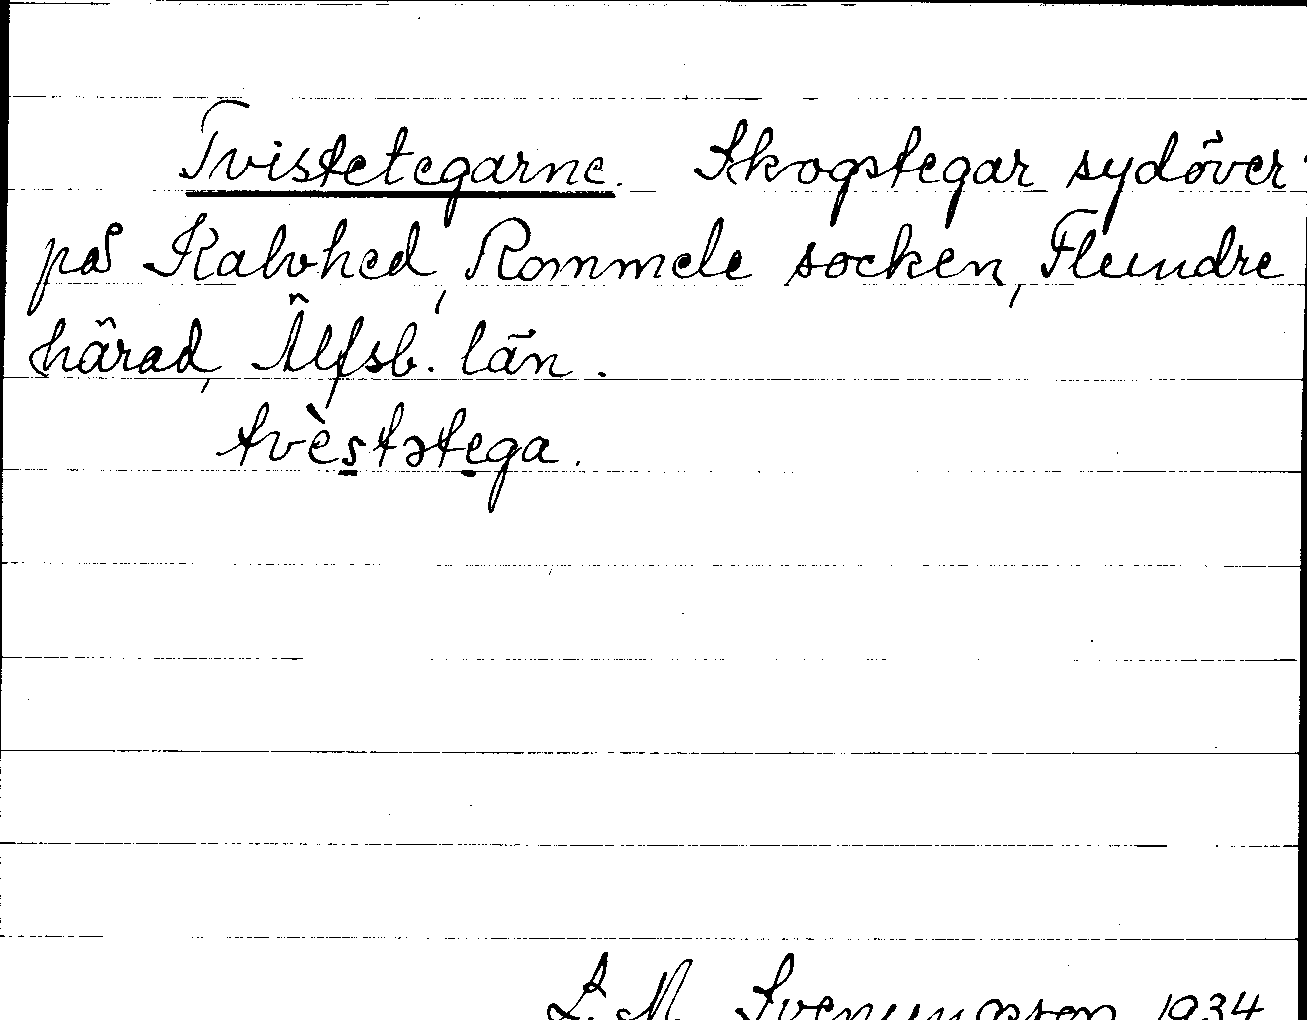 Tvistetegarne. Skogstegar sydöver
på Kalvhed, Rommele socken, Flundre
härad, Älfsb. län.
tvèstətega.
S. M. Svenungsson 1934